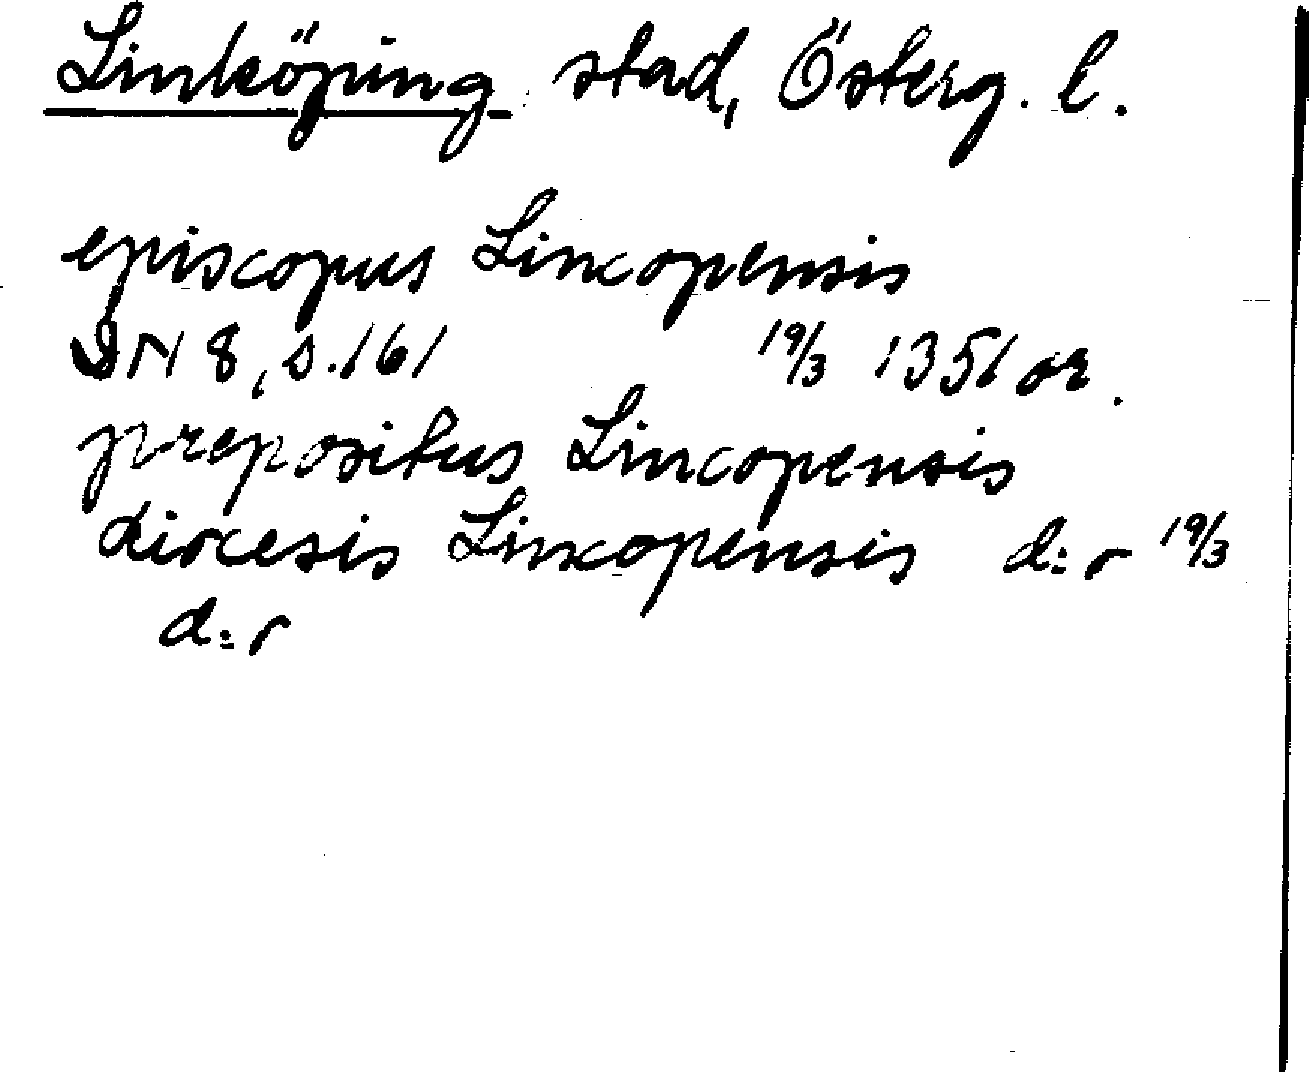 Linköping stad, Österg. l.
episcopus Lincopensis
DN 8, s. 161 19/3 1351 or.
prepositus Lincopensis
diocesis Lincopensis d:r 19/3
d:r